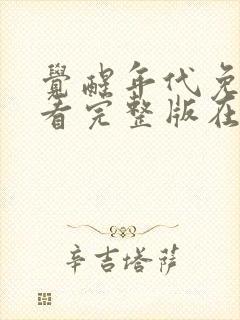 覺醒年代免
看完整版在
辛吉塔萨